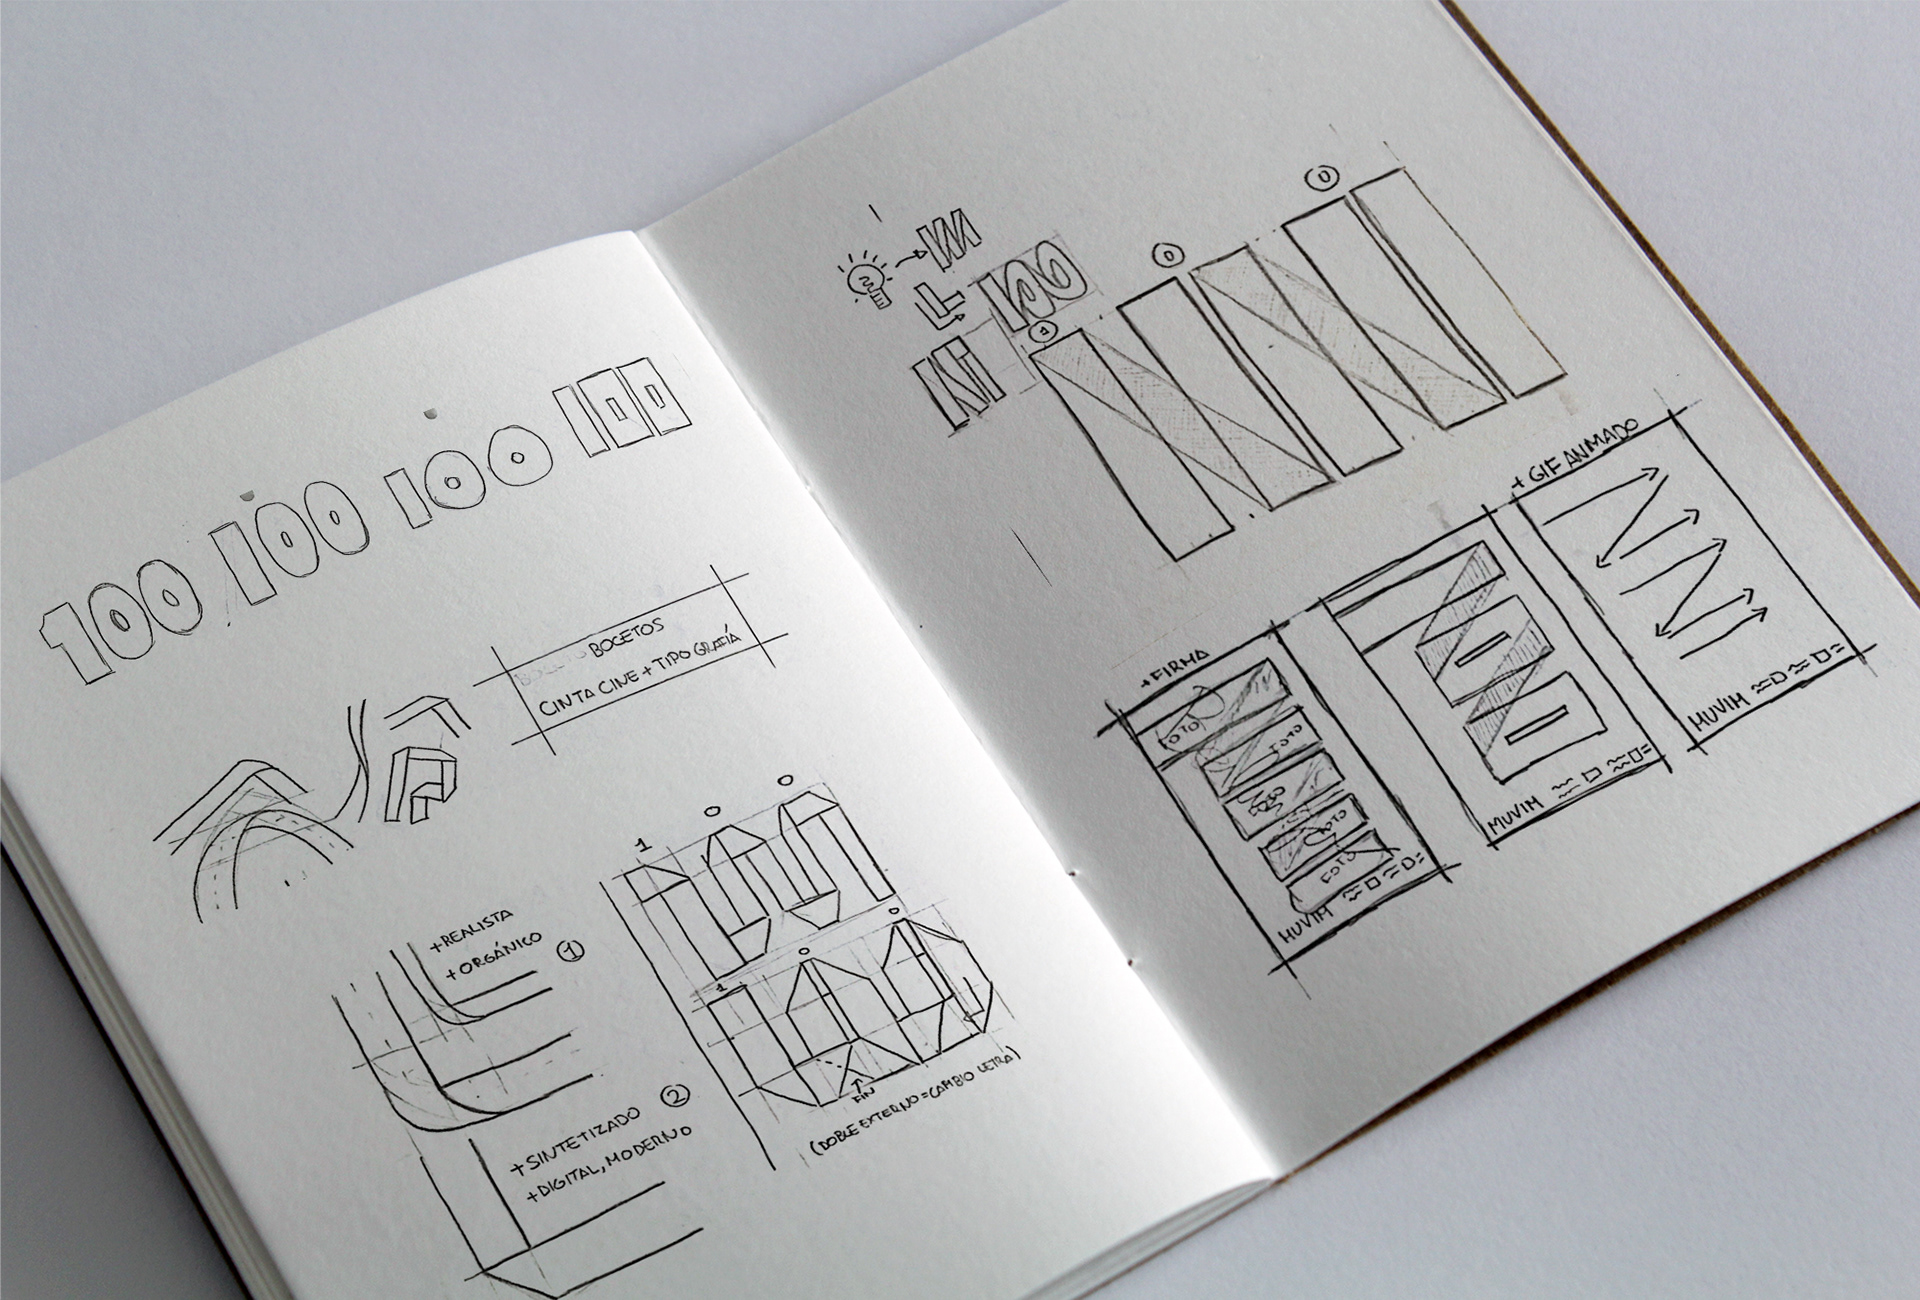 100 100 100 100
BOCETOS
CINTA CINE + TIPOGRAFÍA
+ REALISTA
+ ORGÁNICO
1
2
+ SINTETIZADO
+ DIGITAL, MODERNO
1 0 0
1 0 0
FIN
(DOBLE EXTERNO = CAMBIO LETRA)
100
1 0 0
+ FIRMA
FOTO
FOTO
FOTO
FOTO
MUVIM
MUVIM
+ GIF ANIMADO
MUVIM